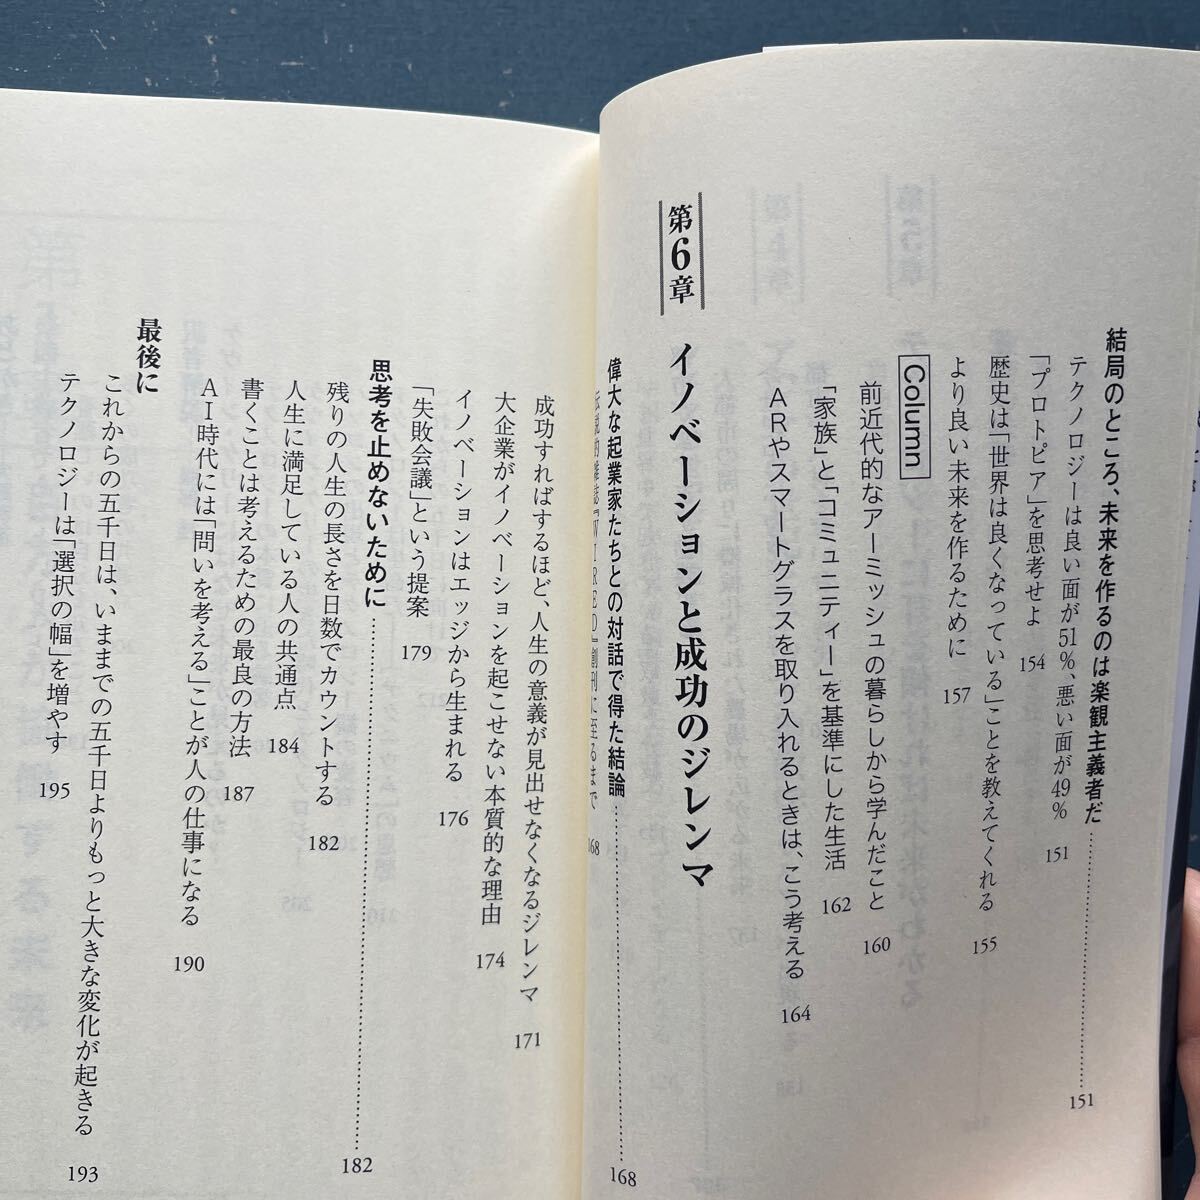 結局のところ、未来を作るのは楽観主義者だ……151
テクノロジーは良い面が51%、悪い面が49% 151
「プロトピア」を思考せよ 154
歴史は「世界は良くなっている」ことを教えてくれる 155
より良い未来を作るために 157
Column
前近代的なアーミッシュの暮らしから学んだこと 160
「家族」と「コミュニティー」を基準にした生活 162
ARやスマートグラスを取り入れるときは、こう考える 164
第6章 イノベーションと成功のジレンマ
偉大な起業家たちとの対話で得た結論……168
伝説的雑誌『WIRED』創刊に至るまで 168
成功すればするほど、人生の意義が見出せなくなるジレンマ 171
大企業がイノベーションを起こせない本質的な理由 174
イノベーションはエッジから生まれる 176
「失敗会議」という提案 179
思考を止めないために……182
残りの人生の長さを日数でカウントする 182
人生に満足している人の共通点 184
書くことは考えるための最良の方法 187
AI時代には「問いを考える」ことが人の仕事になる 190
最後に
これからの五千日は、いままでの五千日よりもっと大きな変化が起きる 193
テクノロジーは「選択の幅」を増やす 195